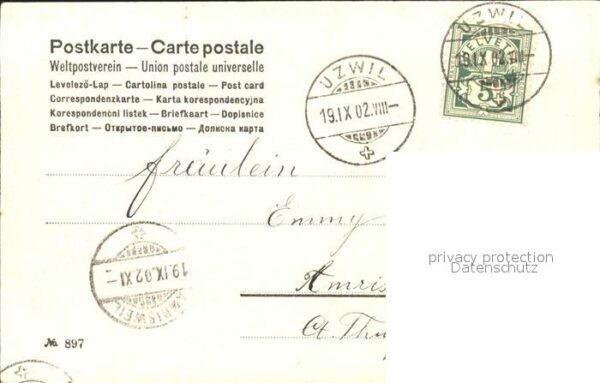 Postkarte — Carte postale
Weltpostverein — Union postale universelle
Levelező-Lap — Cartolina postale — Post card
Correspondenzkarte — Karta korespondencyjna
Korespondenční listek — Briefkaart — Dopisnice
Brefkort — Открытое-письмо — Дописна карта
UZWIL
19.IX 02.VIII—
UZWIL
19.IX 02.VIII—
HELVETIA
5
Fräulein
Emmy
privacy protection
Datenschutz
Amris
Ct. Thu
AMRISWEIL
19.IX.02.XI—
№ 897